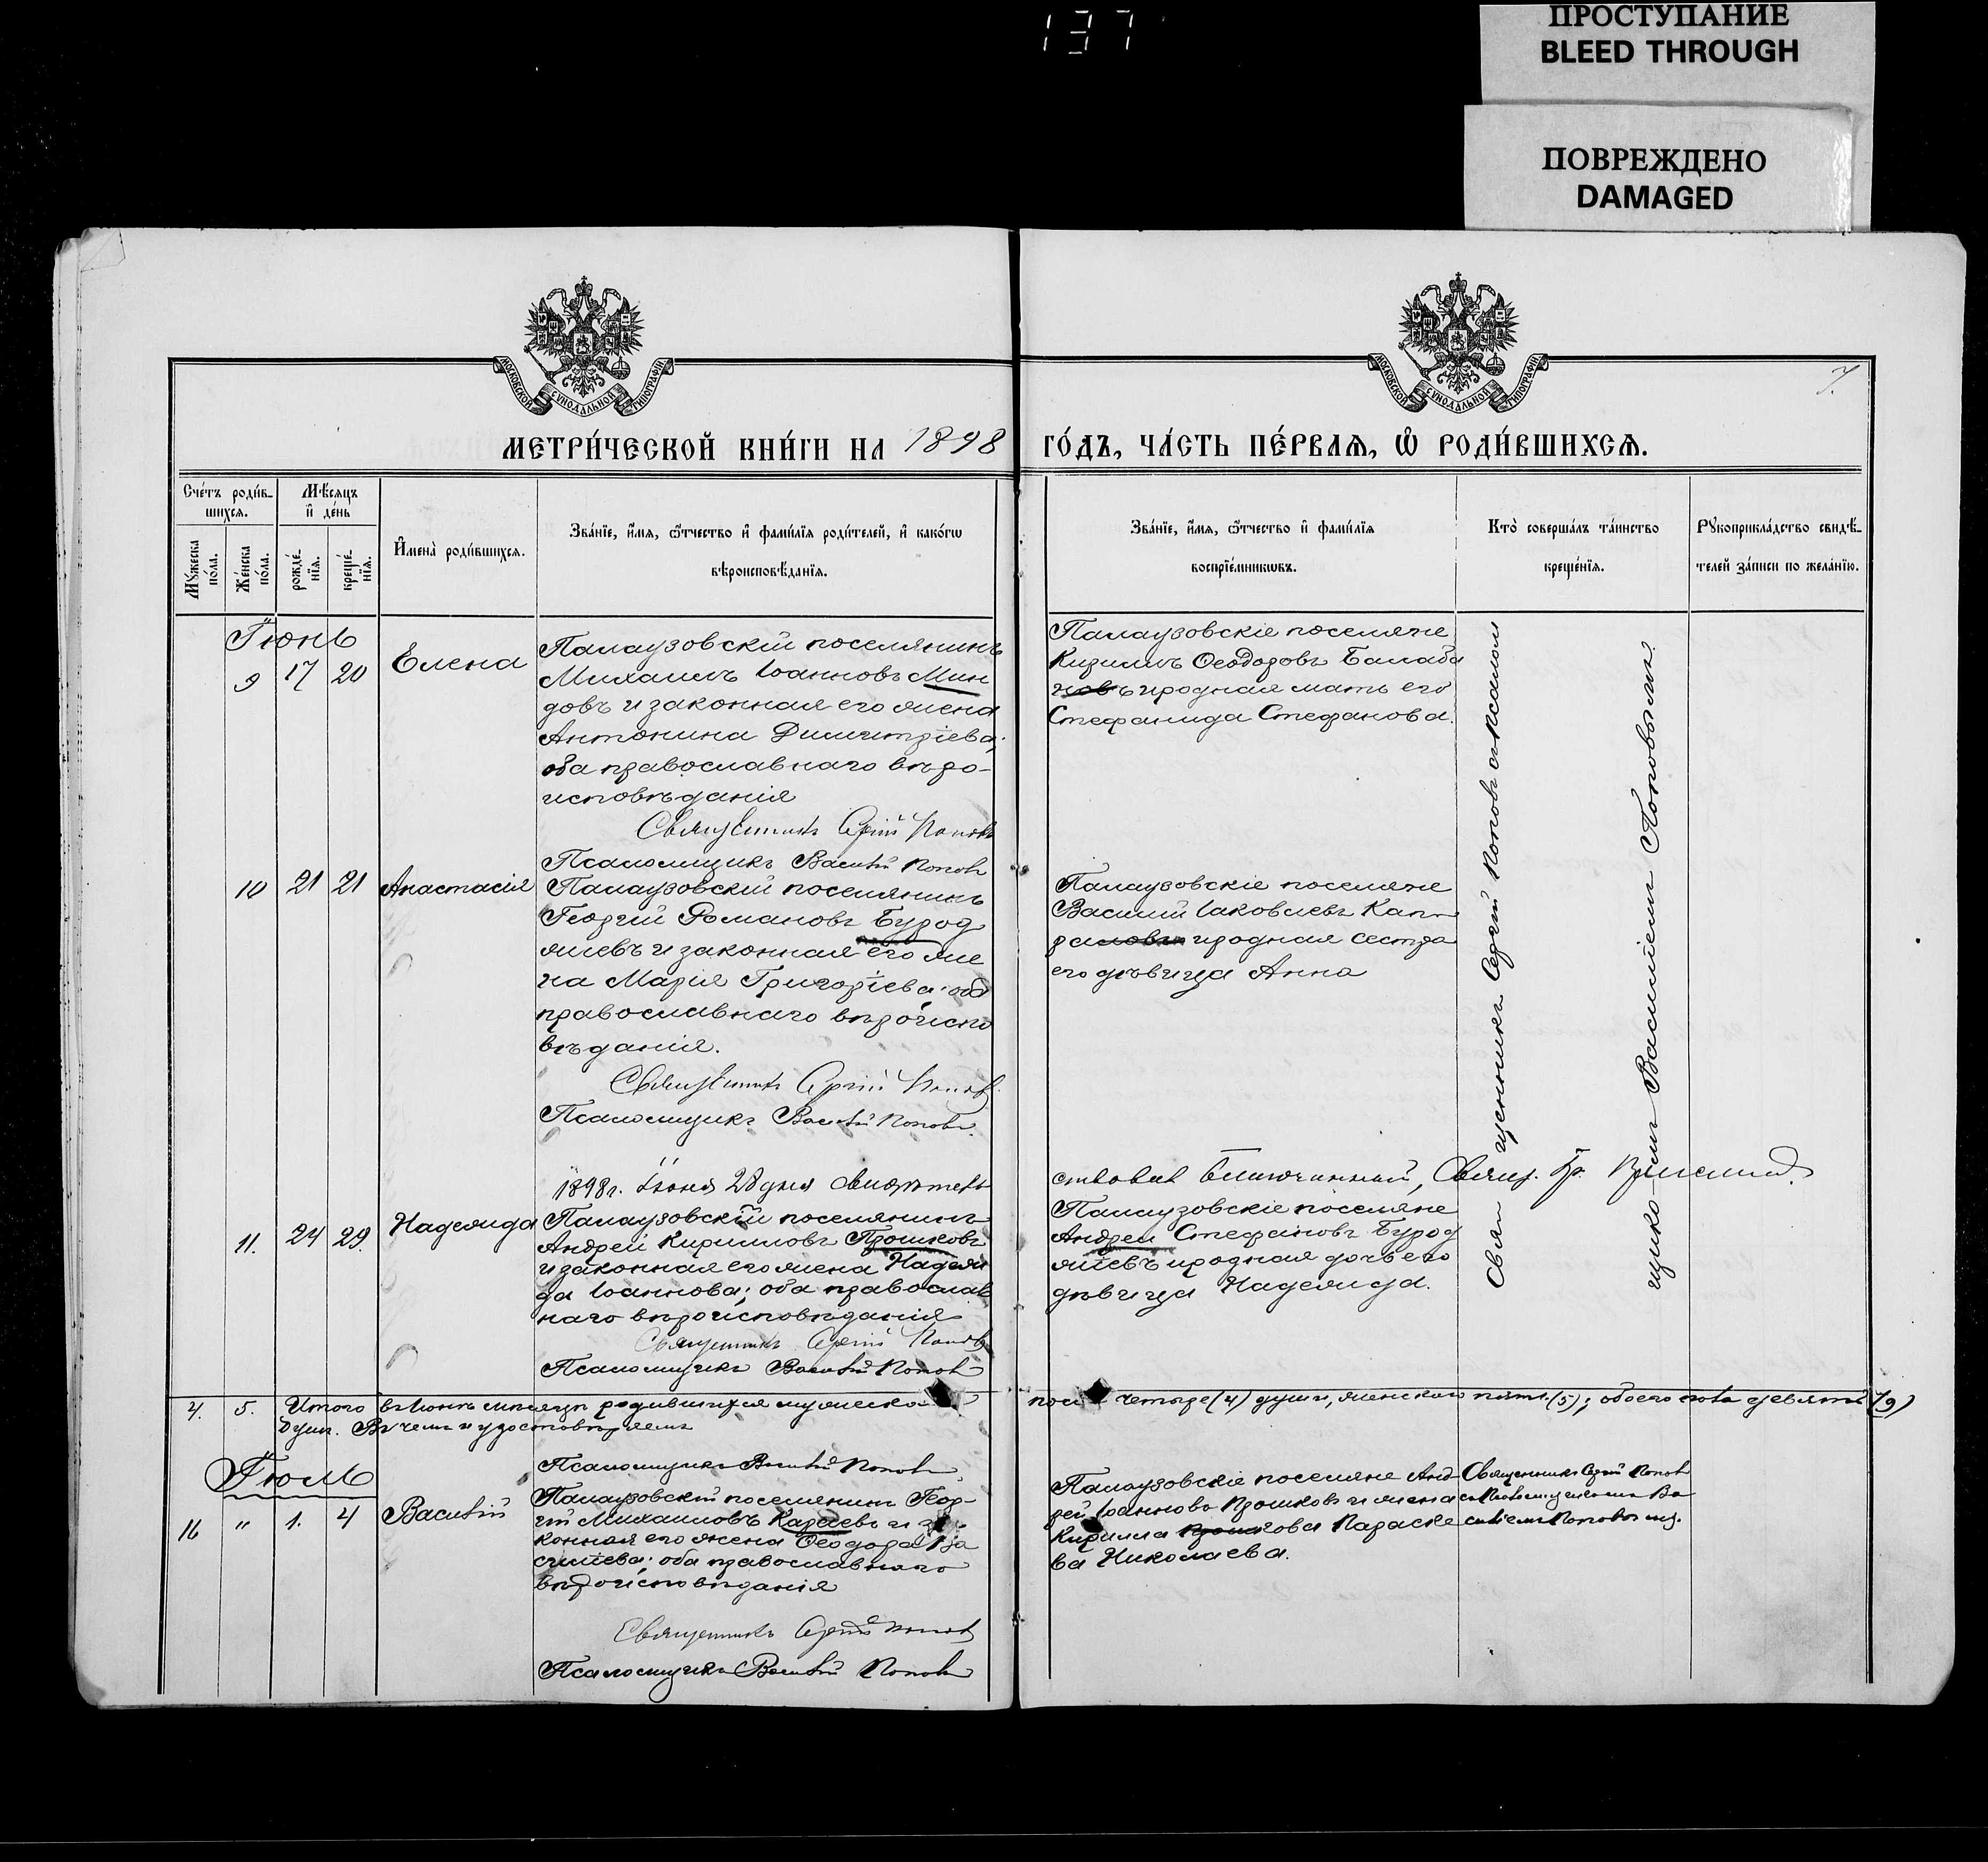 137
ПРОСТУПАНИЕ
BLEED THROUGH
ПОВРЕЖДЕНО
DAMAGED
МОСКОВСКОЙ СѴНОДАЛЬНОЙ ТИПОГРАФІИ
МОСКОВСКОЙ СѴНОДАЛЬНОЙ ТИПОГРАФІИ
7.
МЕТРИ́ЧЕСКОЙ КНИ́ГИ НА 1898 ГО́ДЪ, ЧА́СТЬ ПЕ́РВАѦ, Ѡ҆ РОДИ́ВШИХСѦ.
Сче́тъ роди́в-
шихсѧ.
Мꙋ́жеска
по́ла.
Же́нска
по́ла.
Мѣ́сѧцъ
и҆ де́нь
рожде́-
нїѧ.
креще́-
нїѧ.
И҆мена̀ роди́вшихсѧ.
Зва́нїе, и҆́мѧ, ѻ҆́тчество и҆ фами́лїѧ роди́телей, и҆ како́гѡ
вѣроисповѣ́данїѧ.
Зва́нїе, и҆́мѧ, ѻ҆́тчество и҆ фами́лїѧ
воспрїе́мникѡвъ.
Кто̀ соверша́лъ та́инство
креще́нїѧ.
Рꙋкоприкла́дство свидѣ́-
телей за́писи по жела́нїю.
Іюнь
9 17 20 Елена
Палаузовскій поселянинъ
Михаилъ Іоанновъ Мин
довъ и законная его жена
Антонина Димитріева;
оба православнаго вѣро-
исповѣданія
Священникъ Сергій Поповъ
Псаломщикъ Василій Поповъ
Палаузовскіе поселяне
Кирилъ Ѳеодоровъ Балаба
новъ и родная мать его
Стефанида Стефанова.
10 21 21 Анастасія
Палаузовскій поселянинъ
Георгій Романовъ Бурод
жиевъ и законная его же
на Марія Григоріева; оба
православнаго вѣроиспо
вѣданія.
Священникъ Сергій Поповъ
Псаломщикъ Василій Поповъ.
Палаузовскіе поселяне
Василій Іаковлевъ Кап
раловъ и родная сестра
его дѣвица Анна
1898г. Іюня 28 дня свидѣтель
ствовалъ Благочинный, Свящ.
11. 24 29. Надежда
Палаузовскій поселянинъ
Андрей Кирилловъ Прошковъ
и законная его жена Надеж
да Іоаннова; оба православ
наго вѣроисповѣданія
Священникъ Сергій Поповъ
Псаломщикъ Василій Поповъ
Палаузовскіе поселяне
Андрей Стефановъ Бурод
жиевъ и родная дочь его
дѣвица Надежда.
Священникъ Сергій Поповъ съ псалом
щикомъ Василіемъ Поповымъ.
4. 5. Итого въ Іюнѣ мѣсяцѣ родившихся мужеска
пола четыре (4) души, женскаго пять (5); обоего пола девять (9)
душъ. Въ чемъ и удостовѣряемъ
Псаломщикъ Василій Поповъ
Іюль
16 " 1. 4 Василій
Палаузовскій поселянинъ Геор-
гій Михаиловъ Караевъ и за
конная его жена Ѳеодора Ва
силіева; оба православнаго
вѣроисповѣданія
Священникъ Сергій Поповъ
Псаломщикъ Василій Поповъ
Палаузовскіе поселяне Анд
рей Іоанновъ Прошковъ и жена
Кирилла Прошкова Параске
ва Николаева.
Священникъ Сергій Поповъ
съ Псаломщикомъ Ва
силіемъ Поповымъ.